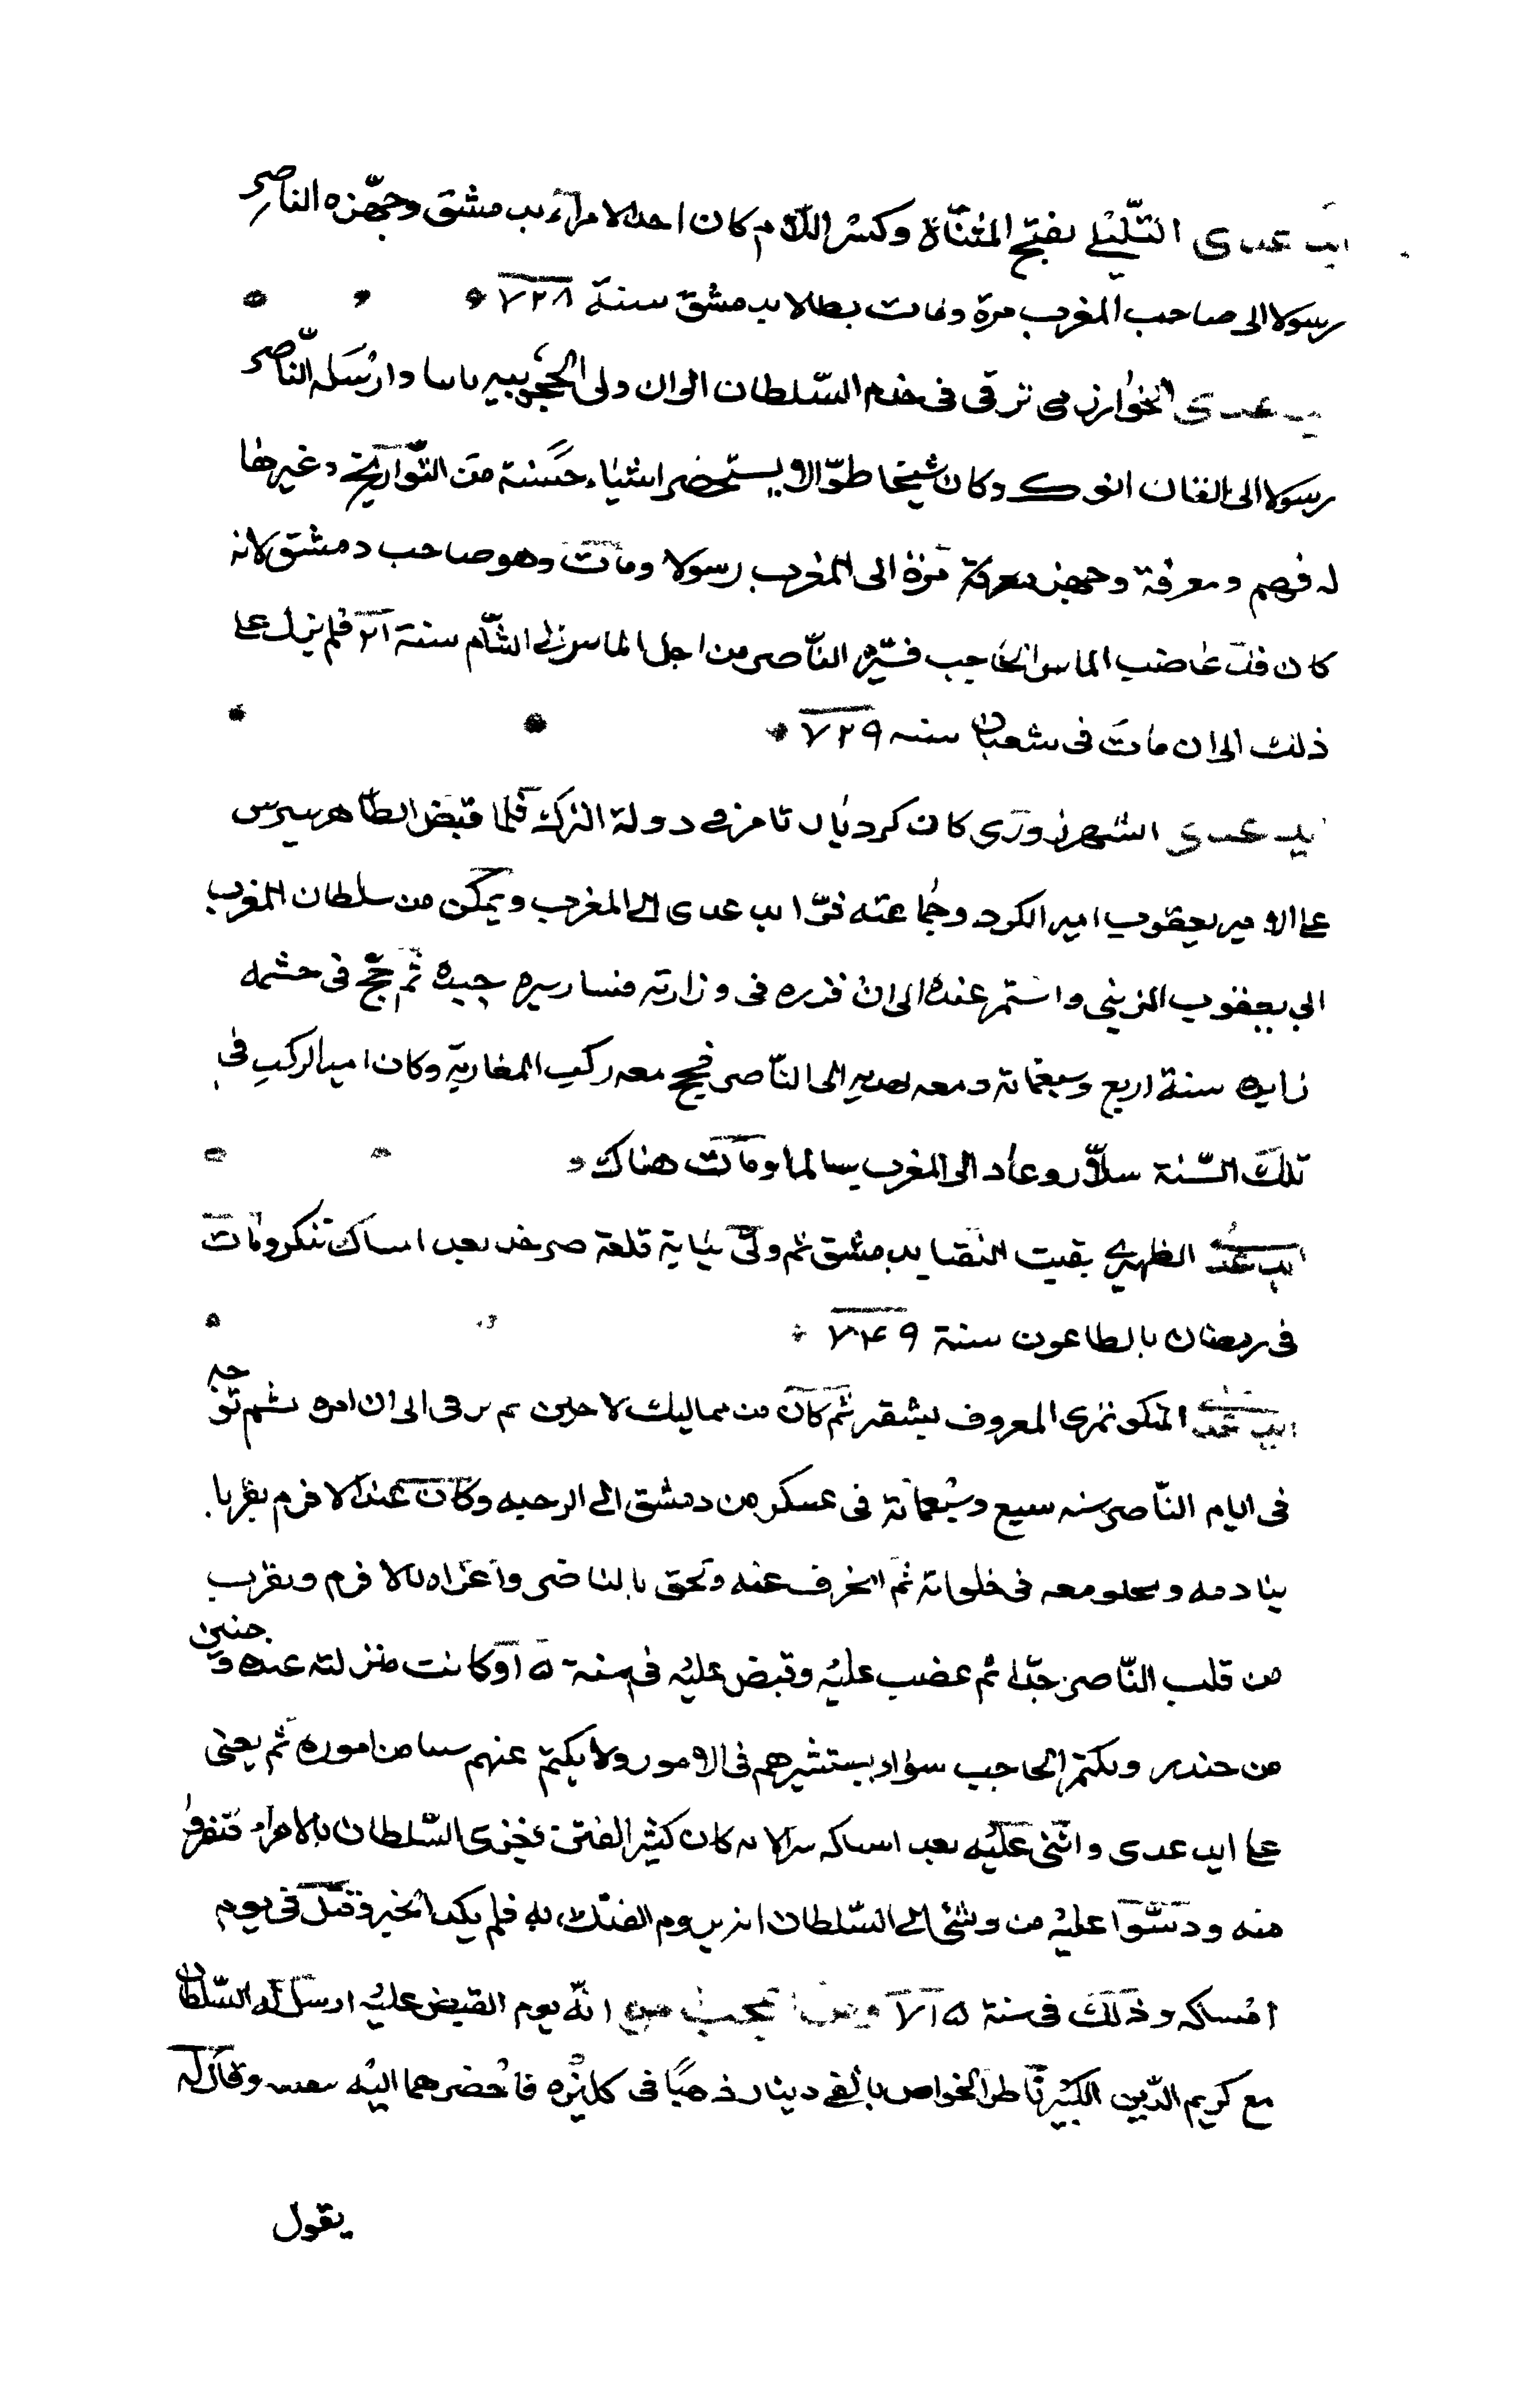 ايدغدى التّليلى بفتح المثنّاة وكسر اللام كان احد الامرآء بدمشق وجهّزه الناصر
رسولا الى صاحب المغرب مرة ومات بطالا بدمشق سنة ٧٢٨
ايدغدى الخوارزمى ترقى فى خدم السّلطان الى ان ولى الحجوبيه بالشام وارسَله النّاصر
رسولا الى القان ازبك وكان شيخا طوّالا يستحضر اشياء حسنة من التّواريخ وغيرها
له فهم ومعرفة وجهز مرة الى المغرب رسولا ومات وهو حاجب دمشق لانه
كان قد غاضب الماس الحاجب فسيّره الناصر من اجل الماس الى الشّام سنة ٢١ فلم يزل على
ذلك الى ان مات فى شعبان سنه ٧٢٩
ايدغدى الشهرزورى كان كرديا تامر فى دولة الترك فلما قبض الظّاهر بيبرس
على الامير يعقوب امير الكرد وجماعته فرّ ايدغدى الى المغرب وتمكن من سلطان المغرب
ابى يعقوب المرينى واستمر عنده الى ان قرره فى وزارته فسار سيرة جيدة ثم حج فى حشمه
زايده سنة اربع وسبعماية ومعه هديه الى النّاصر فحج معه ركب المغاربة وكان امير الركب فى
تلك السّنة سلاّر وعاد الى المغرب سالما ومات هناك
ايدغدى الظهيرى بقيت النقبا بدمشق ثم ولى نيابة قلعة صرخد بعد امساك تنكز ومات
فى رمضان بالطاعون سنة ٧٤٩
ايدغدى المنكوتمرى المعروف بشقير ثم كان من مماليك لاجين ثم ترقى الى ان امره ثم توجه
فى ايام النّاصر سنه سبع وسبعماية فى عسكر من دمشق الى الرحبه وكان عند الافرم مقربا
ينادمه ويخلو معه فى خلواته ثم انحرف عنه ولحق بالناصر واغراه بالافرم وتقرب
من قلب النّاصر جدّا ثم غضب عليه وقبض عليه فى سنة ٧١٥ وكانت منزلته عنده و
من جندر وبكتمر الحاجب سواء يستشيرهم فى الامور ولا يكتم عنهم شيا من اموره ثم
على ايدغدى واثنى عليه بعد امساكه لانه كان كثير الفتن يغرى السّلطان بالامراء فنفروا
منه ودسّوا عليه من وشى الى السّلطان انه يروم الفتك به فلم يكد الخبر وقتل فى يوم
امساكه وذلك فى سنة ٧١٥ انّه يوم القبض عليه ارسل له السّلطان
مع كريم الدّين الكبير ناظر الخواص بالفى دينار ذهبا فى فاحضرهما اليه وقال له
يقول